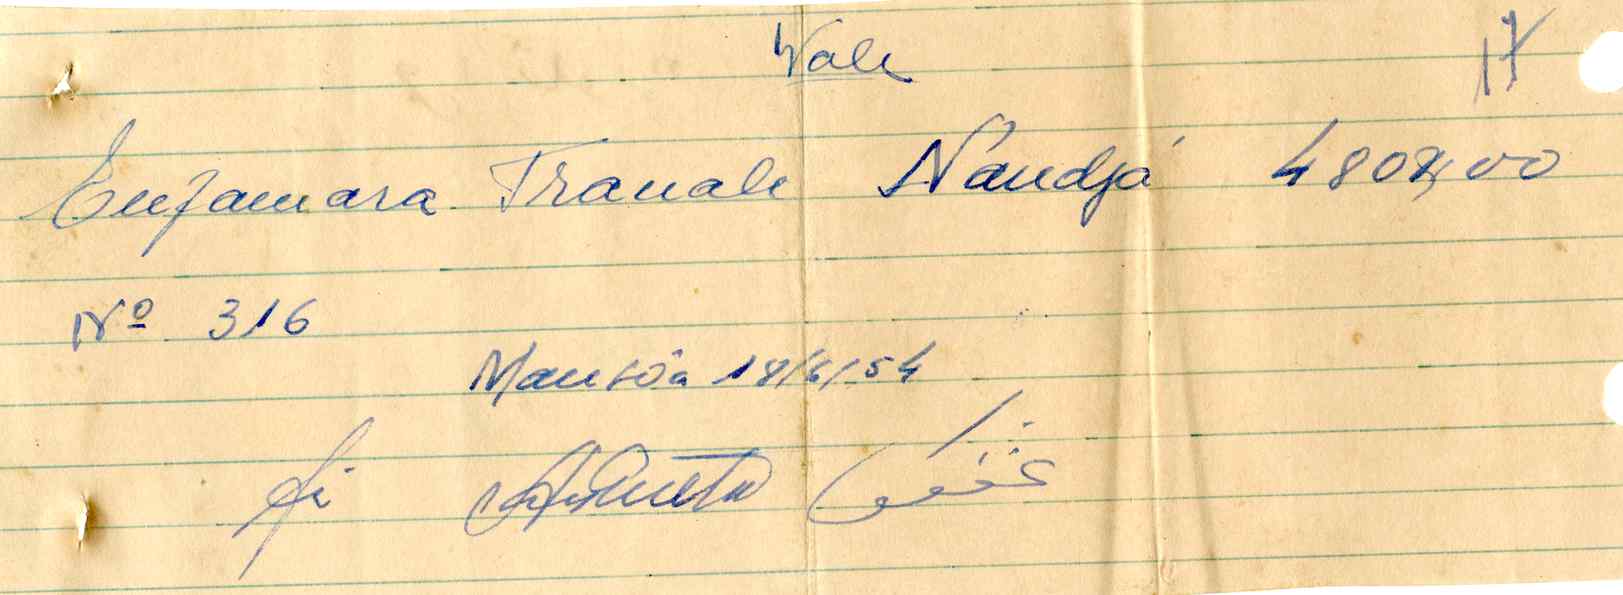 Vale 17
Enfamara Tranale Nandjá 480$00
Nº 316
Mansôa 18/6/54